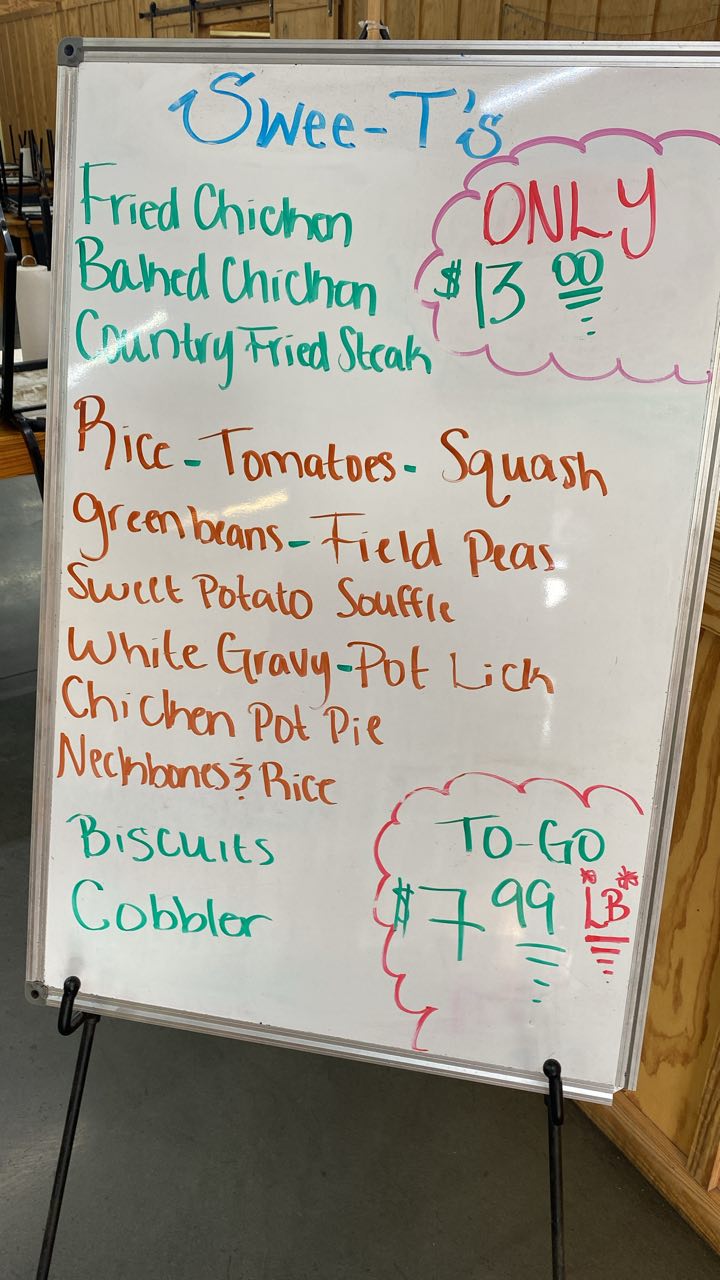 Swee-T's
Fried Chicken
Baked Chicken
Country Fried Steak
ONLY
$13 00
Rice - Tomatoes - Squash
greenbeans - Field Peas
Sweet Potato Souffle
White Gravy - Pot Lick
Chicken Pot Pie
Neckbones & Rice
Biscuits
Cobbler
TO-GO
$7 99 *LB*